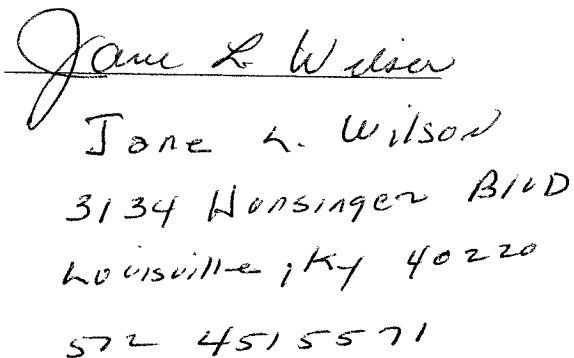 Jane L. Wilson
Jane L. Wilson
3134 Hunsinger Blvd
Louisville, Ky 40220
572 4515571